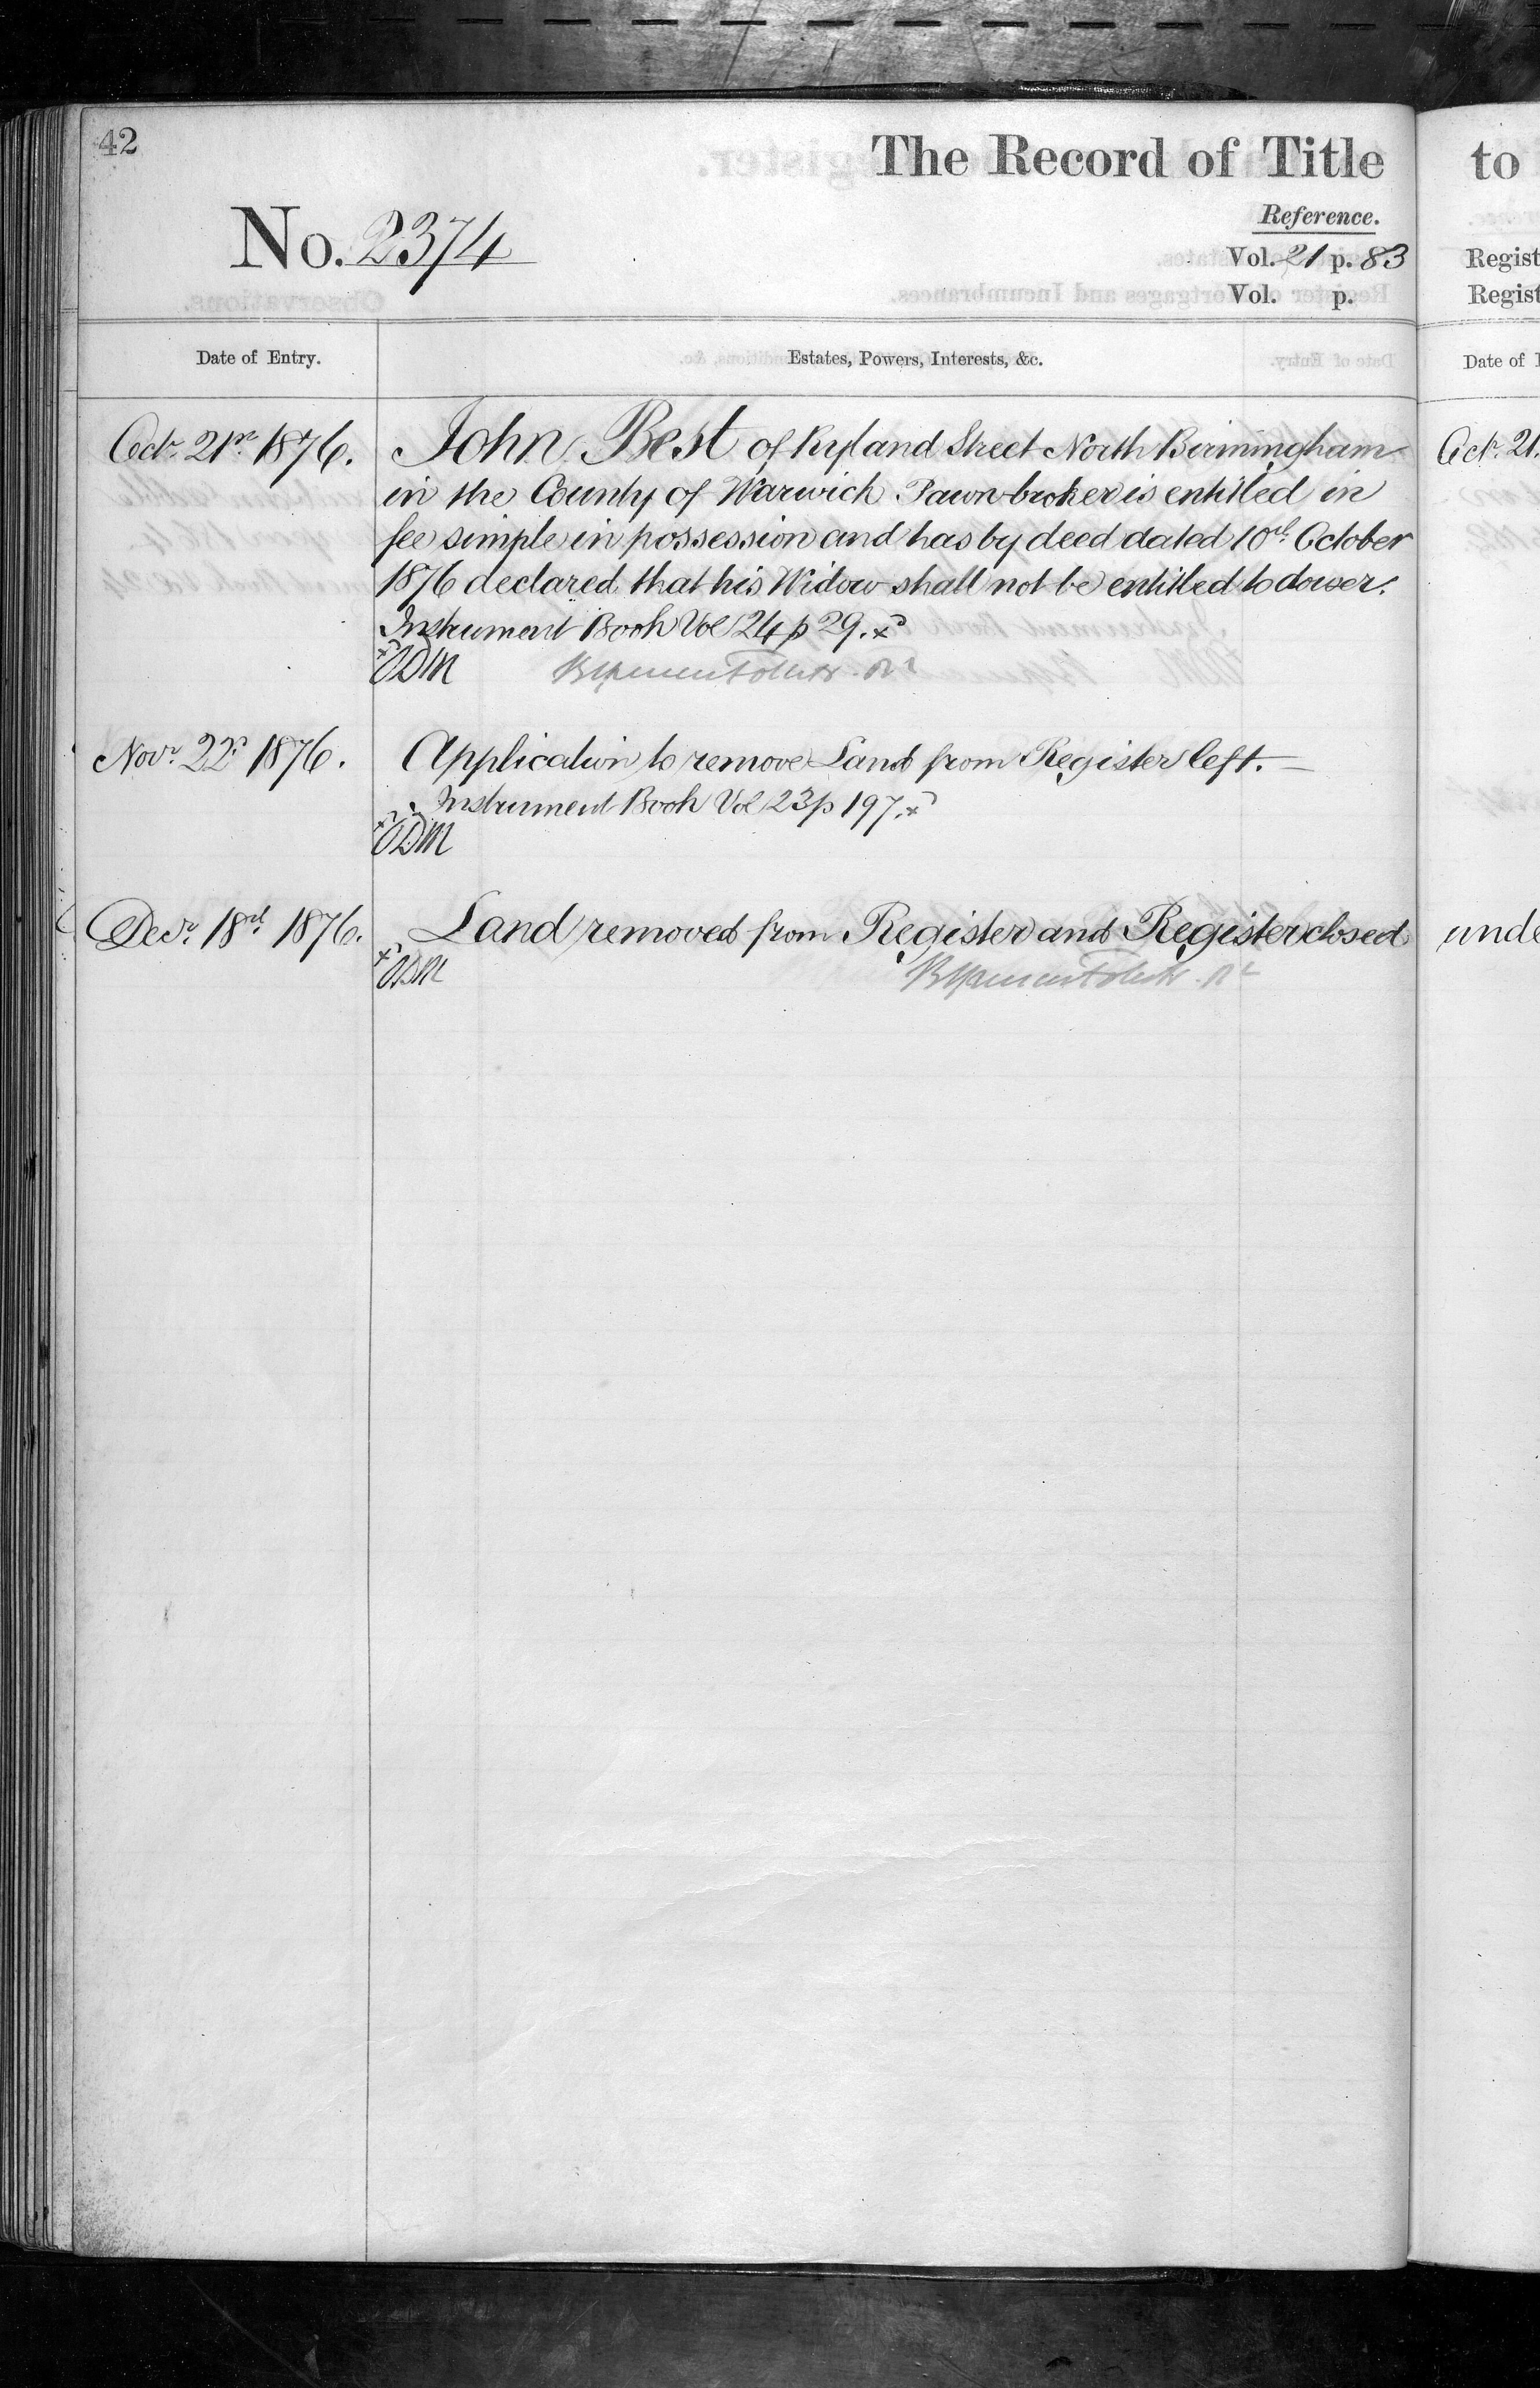 42
The Record of Title
No. 2374
Reference.
Vol. 21 p. 83
Vol. p.
Date of Entry.
Estates, Powers, Interests, &c.
Octr. 21st 1876.
John Best of Ryland Street North Birmingham
in the County of Warwick Pawnbroker is entitled in
fee simple in possession and has by deed dated 10th October
1876 declared that his Widow shall not be entitled to dower.
Instrument Book Vol 24 p 29. x
Novr. 22d 1876.
Application to remove Land from Register left. —
Instrument Book Vol 23 p 197. x
Decr. 18th 1876.
Land removed from Register and Register closed
to
Regist
Regist
Date of
Octr. 21.
unde